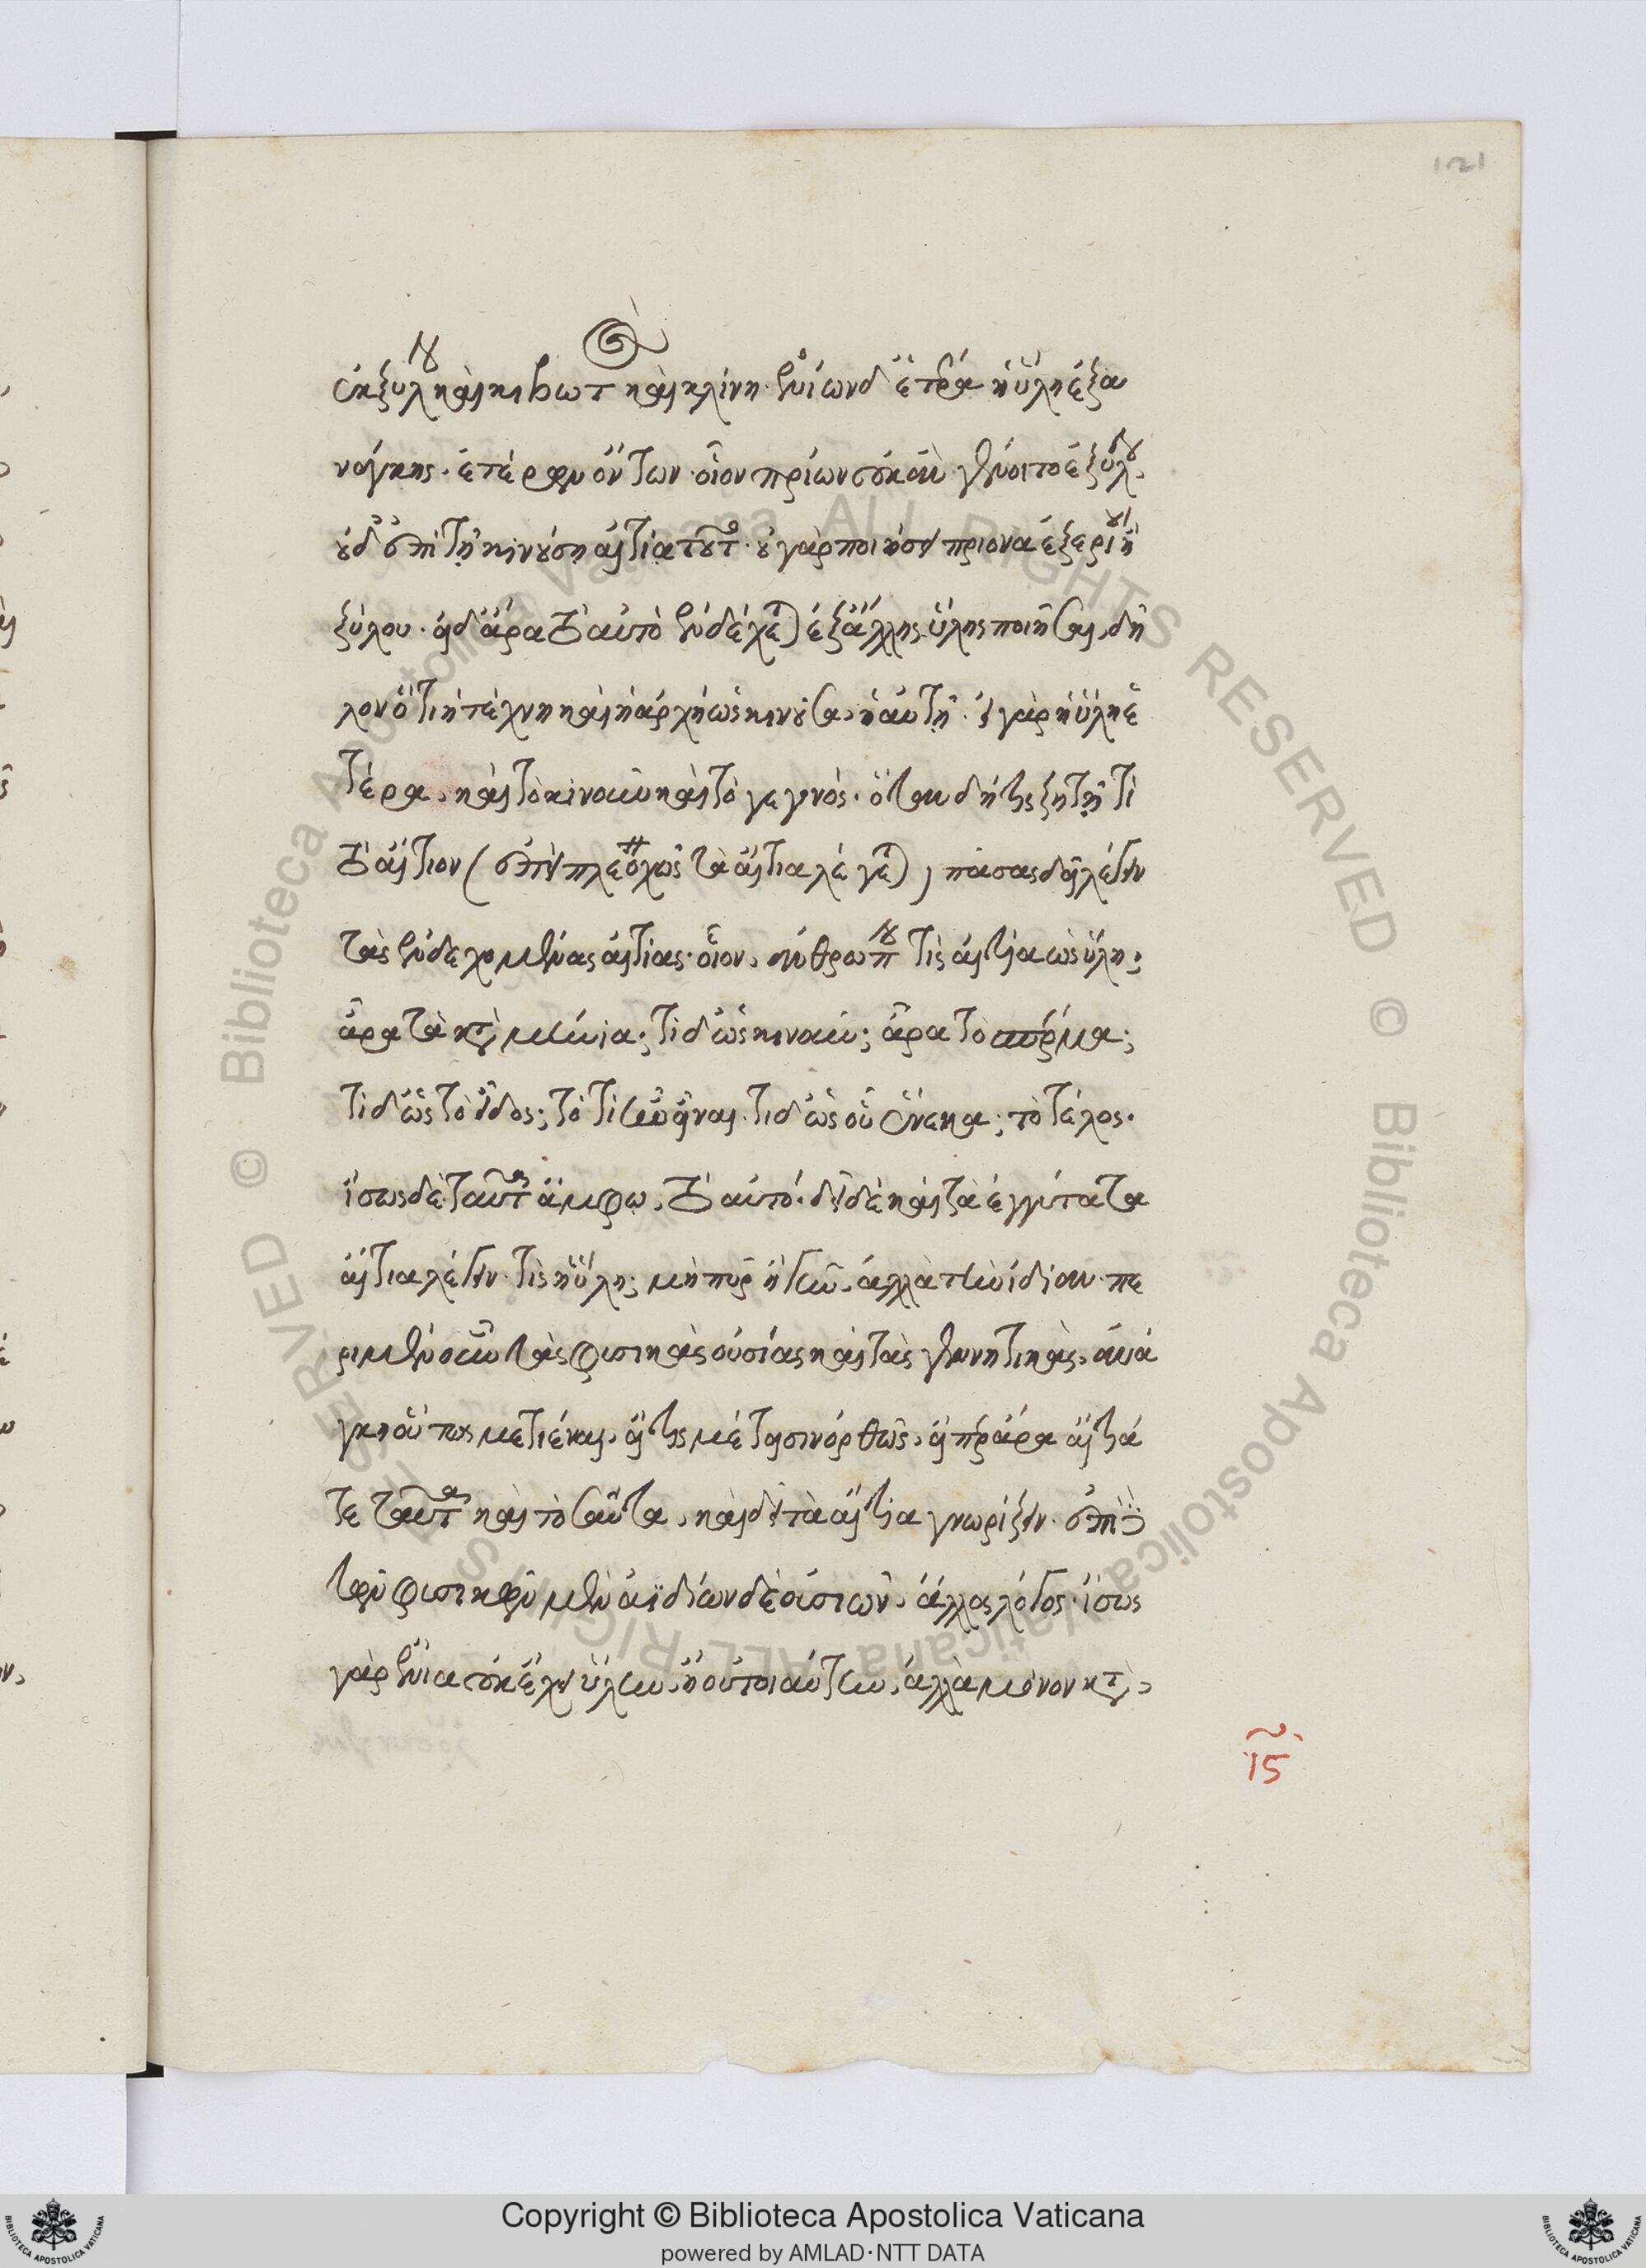 121
ἐκ ξύλου καὶ κιβωτὸς καὶ κλίνη· ἐνίων δ' ἑτέρα ἡ ὕλη ἐξ ἀ
νάγκης· ἑτέρων ὄντων· οἷον πρίων οὐκ ἂν γένοιτο ἐξύλου,
οὐδ' ἐπὶ τῇ κινούσῃ αἰτία τοῦτο· οὐ γὰρ ποιήσει πρίονα ἐξ ἐρίου ἢ
ξύλου· εἰ δ' ἄρα τὸ αὐτὸ ἐνδέχεται ἐξ ἄλλης ὕλης ποιῆσαι, δῆ
λον ὅτι ἡ τέχνη καὶ ἡ ἀρχὴ ὡς κινοῦσα, ἡ αὐτή· εἰ γὰρ ἡ ὕλη ἑ
τέρα, καὶ τὸ κινοῦν καὶ τὸ γεγονός· ὅταν δή τις ζητῇ τί
τὸ αἴτιον (ἐπεὶ πλεοναχῶς τὰ αἴτια λέγεται) πάσας δεῖ λέγειν
τὰς ἐνδεχομένας αἰτίας· οἷον, ἀνθρώπου τίς αἰτία ὡς ὕλη;
ἆρα τὰ καταμήνια; τί δ' ὡς κινοῦν; ἆρα τὸ σπέρμα;
τί δ' ὡς τὸ εἶδος; τὸ τί ἦν εἶναι· τί δ' ὡς οὗ ἕνεκα; τὸ τέλος·
ἴσως δὲ ταῦτα ἄμφω, τὸ αὐτό· δεῖ δὲ καὶ τὰ ἐγγύτατα
αἴτια λέγειν· τίς ἡ ὕλη; μὴ πῦρ ἢ γῆν, ἀλλὰ τὴν ἰδίαν· πε
ρὶ μὲν οὖν τὰς φυσικὰς οὐσίας καὶ τὰς γεννητικὰς, ἀνά
γκη οὕτως μετιέναι, εἴ τις μέτεισιν ὀρθῶς, εἴπερ ἄρα αἴτιά
τε ταῦτα καὶ τοσαῦτα, καὶ δεῖ τὰ αἴτια γνωρίζειν· ἐπὶ δὲ
τῶν φυσικῶν μὲν ἀϊδίων δὲ οὐσιῶν, ἄλλος λόγος· ἴσως
γὰρ ἔνια οὐκ ἔχει ὕλην, ἢ οὐ τοιαύτην, ἀλλὰ μόνον κατὰ,
ις
Copyright © Biblioteca Apostolica Vaticana
powered by AMLAD·NTT DATA